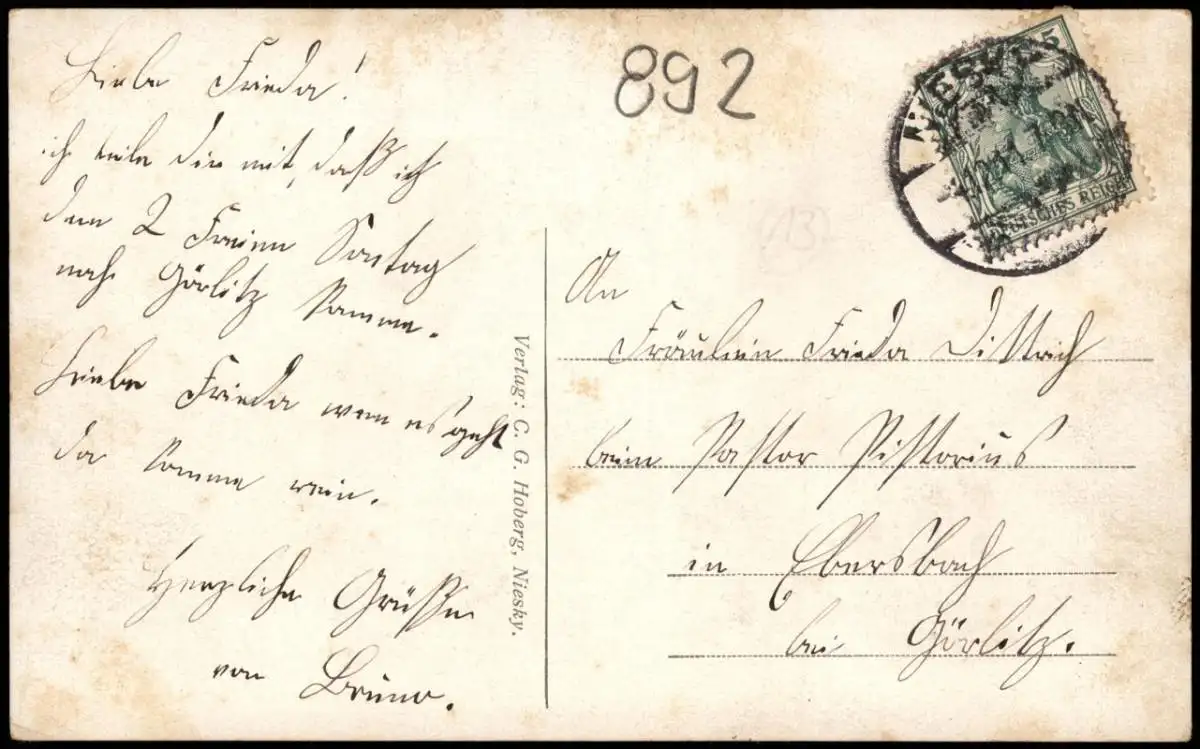 Liebe Frieda!
ich teile dir mit, daß ich
den 2 Freien Sontag
nach Görlitz komme.
Liebe Frieda wen es geht
da komme rein.
Herzliche Grüße
von Bruno.
Verlag: C. G. Hoberg, Niesky.
892
(13)
NIESKY
5
DEUTSCHES REICH
An
Fräulein Frieda Dittrich
beim Pastor Pistorius
in Ebersbach
bei Görlitz.